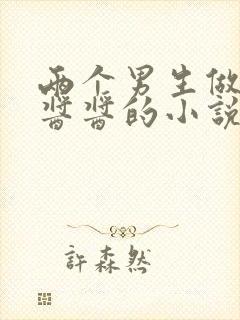 兩个男生做
醬醬的小說
許森然